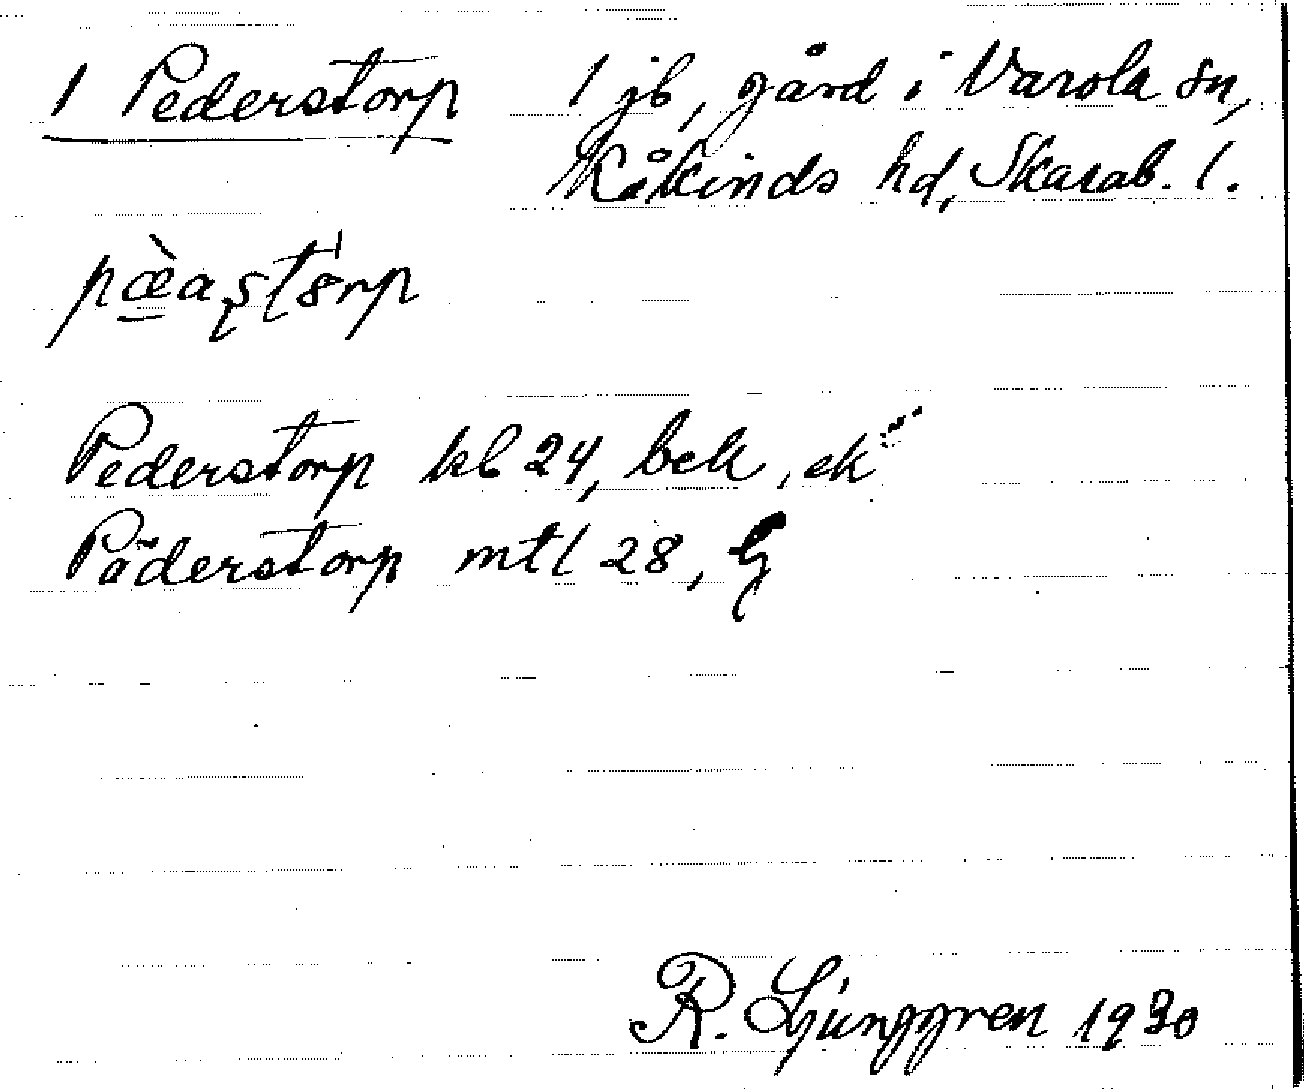 1 Pederstorp 1 jb, gård i Varola sn,
Kåkinds hd, Skarab. l.
Pederstorp kb 24, bek, ek
Päderstorp mtl 28, G
R. Ljunggren 1930